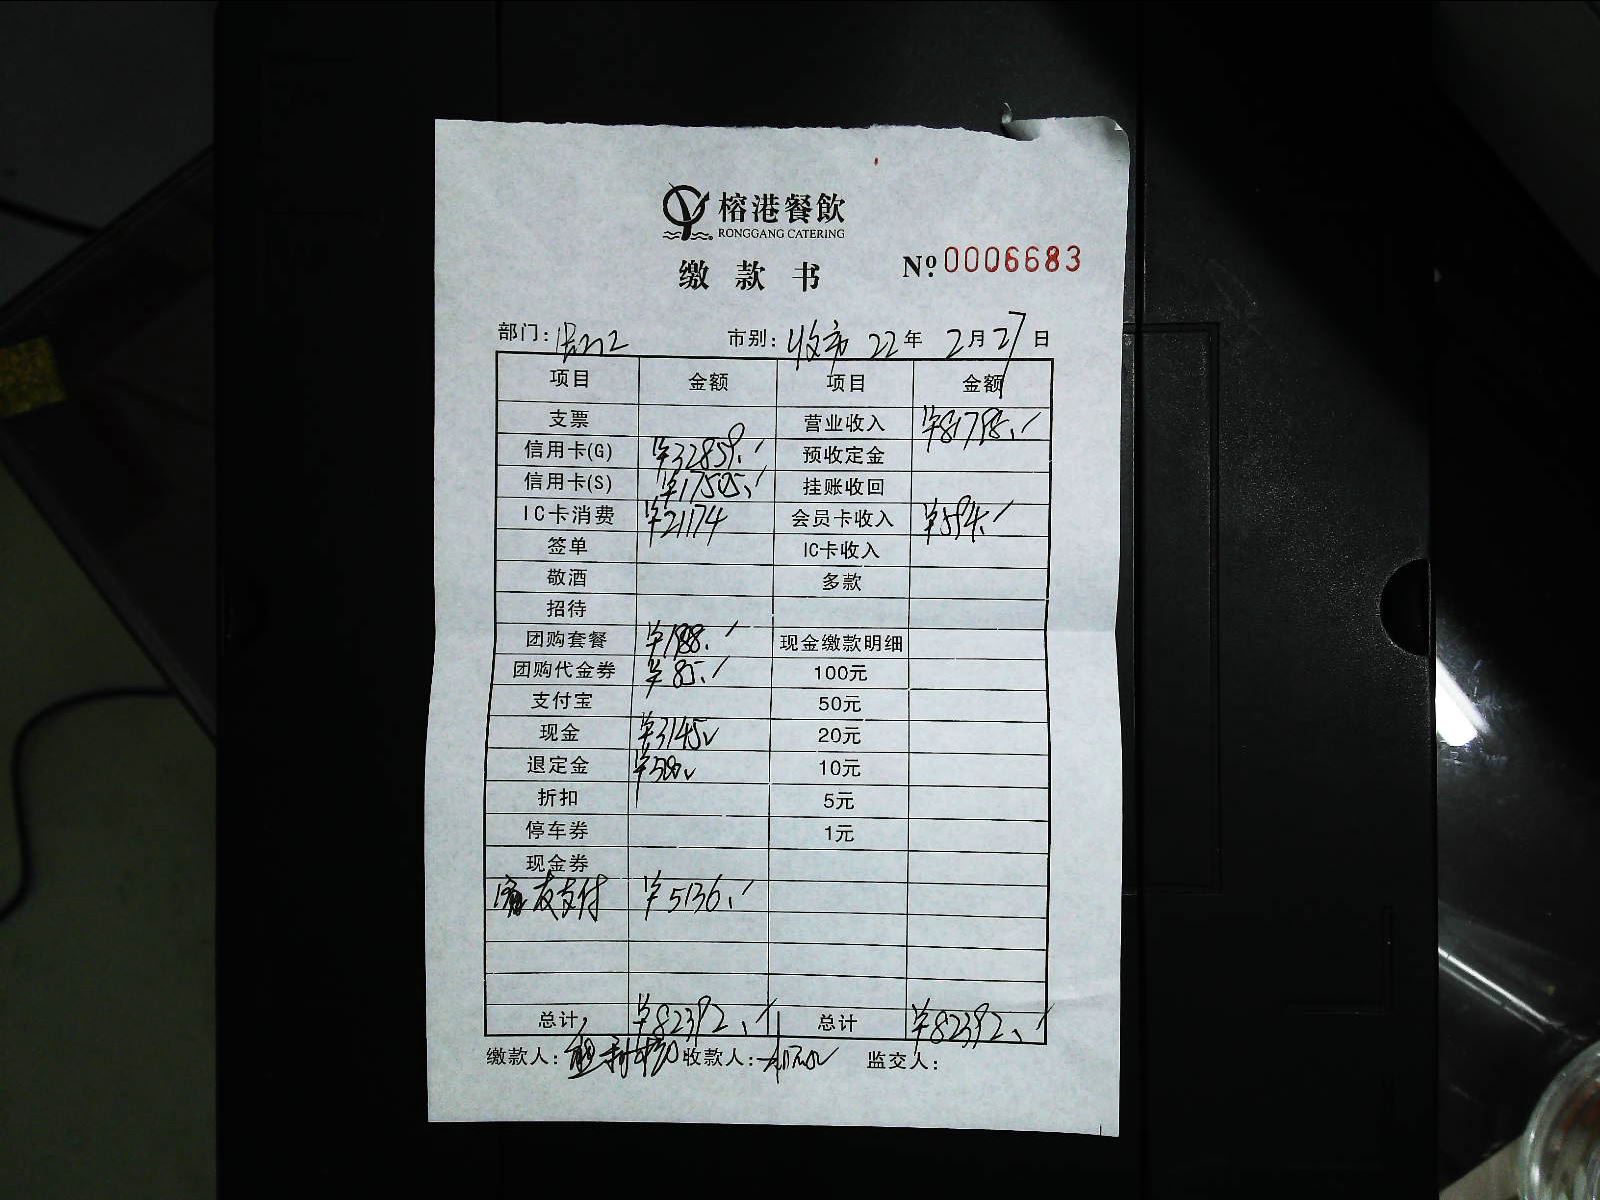 榕港餐飲
RONGGANG CATERING
缴款书 Nº 0006683
部门: 市别: 收市 22年 2月27日
项目 金额 项目 金额
支票 营业收入 ¥81798.
信用卡(G) ¥32859. 预收定金
信用卡(S) ¥17505. 挂账收回
IC卡消费 ¥21174 会员卡收入 ¥594.
签单 IC卡收入
敬酒 多款
招待
团购套餐 ¥1988. 现金缴款明细
团购代金券 ¥85. 100元
支付宝 50元
现金 ¥3145 20元
退定金 ¥500 10元
折扣 5元
停车券 1元
现金券
友支付 ¥5136.
总计 ¥82392. 总计 ¥82392.
缴款人: 收款人: 监交人: